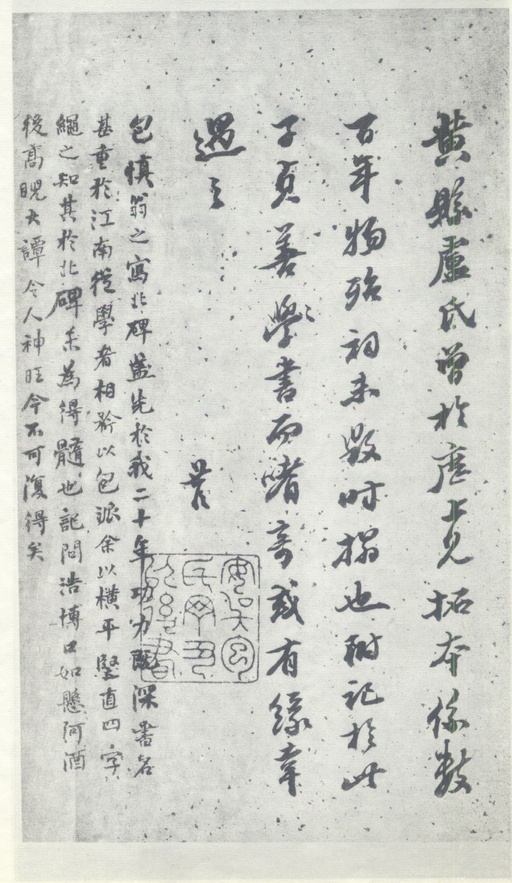 黄縣盧氏曾於廠上見拓本係數
百年物殆初未毀時搨也附記於此
子貞善學書而嗜奇或有緣幸
遇之
包慎翁之寫北碑蓋先於我二十年功力既深書名
甚重於江南從學者相矜以包派余以橫平豎直四字
繩之知其於北碑未為得髓也記問浩博口如懸河酒
後高睨大譚令人神旺今不可復得矣